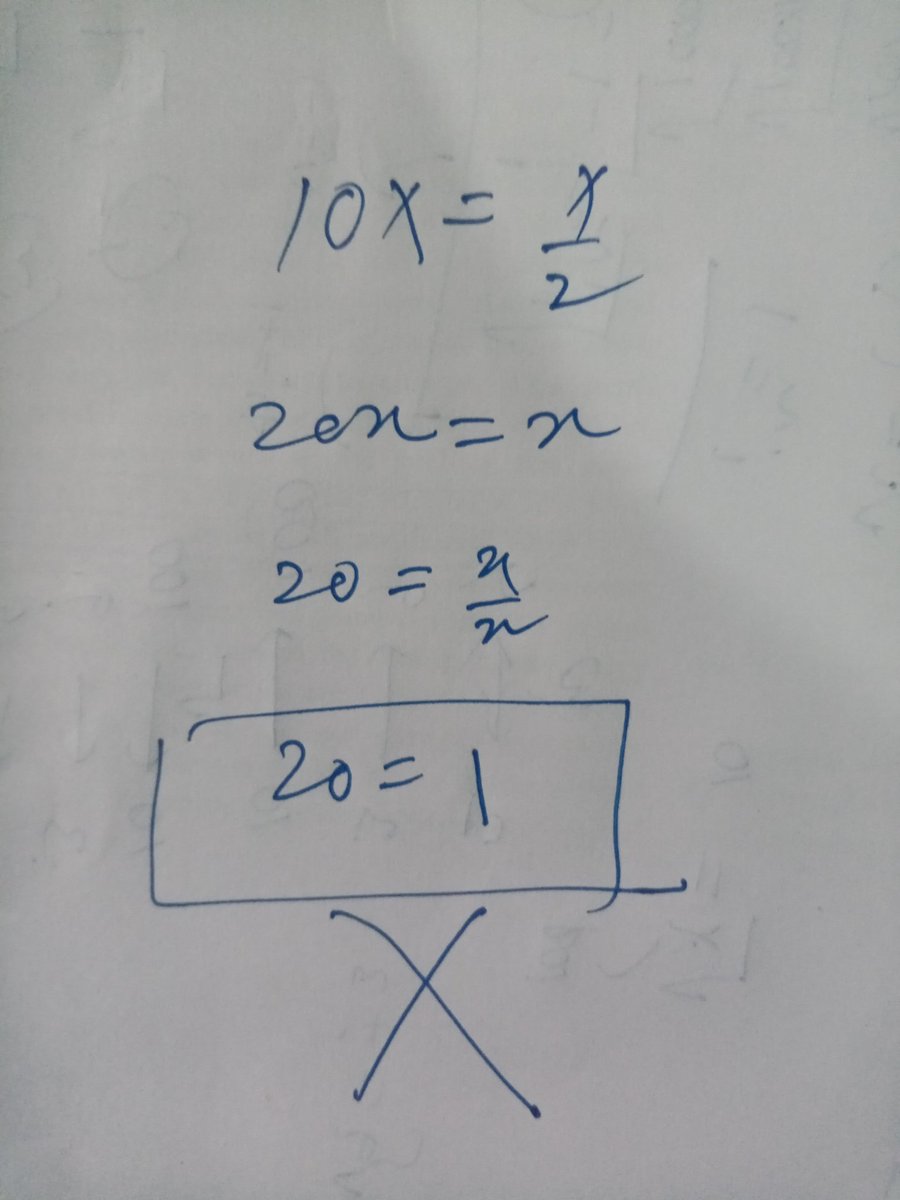 10x = x/2
20x = x
20 = x/x
20 = 1